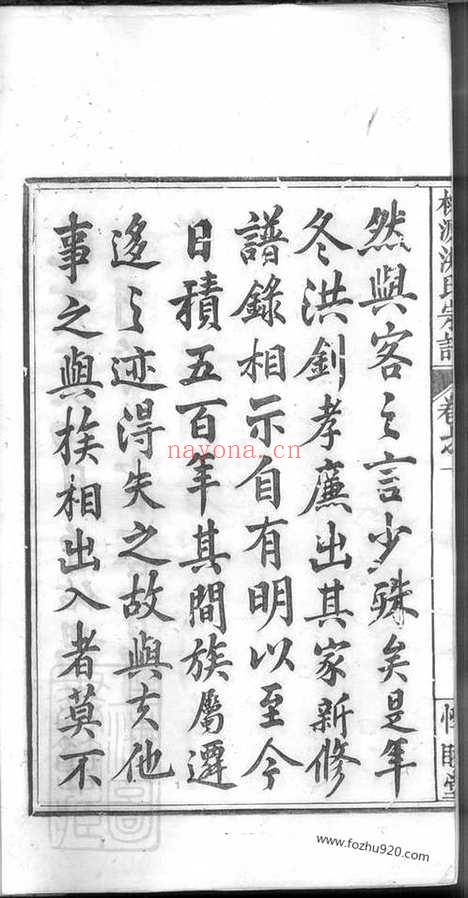 然與客之言少殊矣是年
冬洪釗孝廉出其家新修
譜錄相示自有明以至今
日積五百年其間族屬遷
迻之迹得失之故與夫他
事之與族相出入者莫不
洪氏宗譜
卷之一
惇睦堂
nayona.cn
www.fozhu920.com